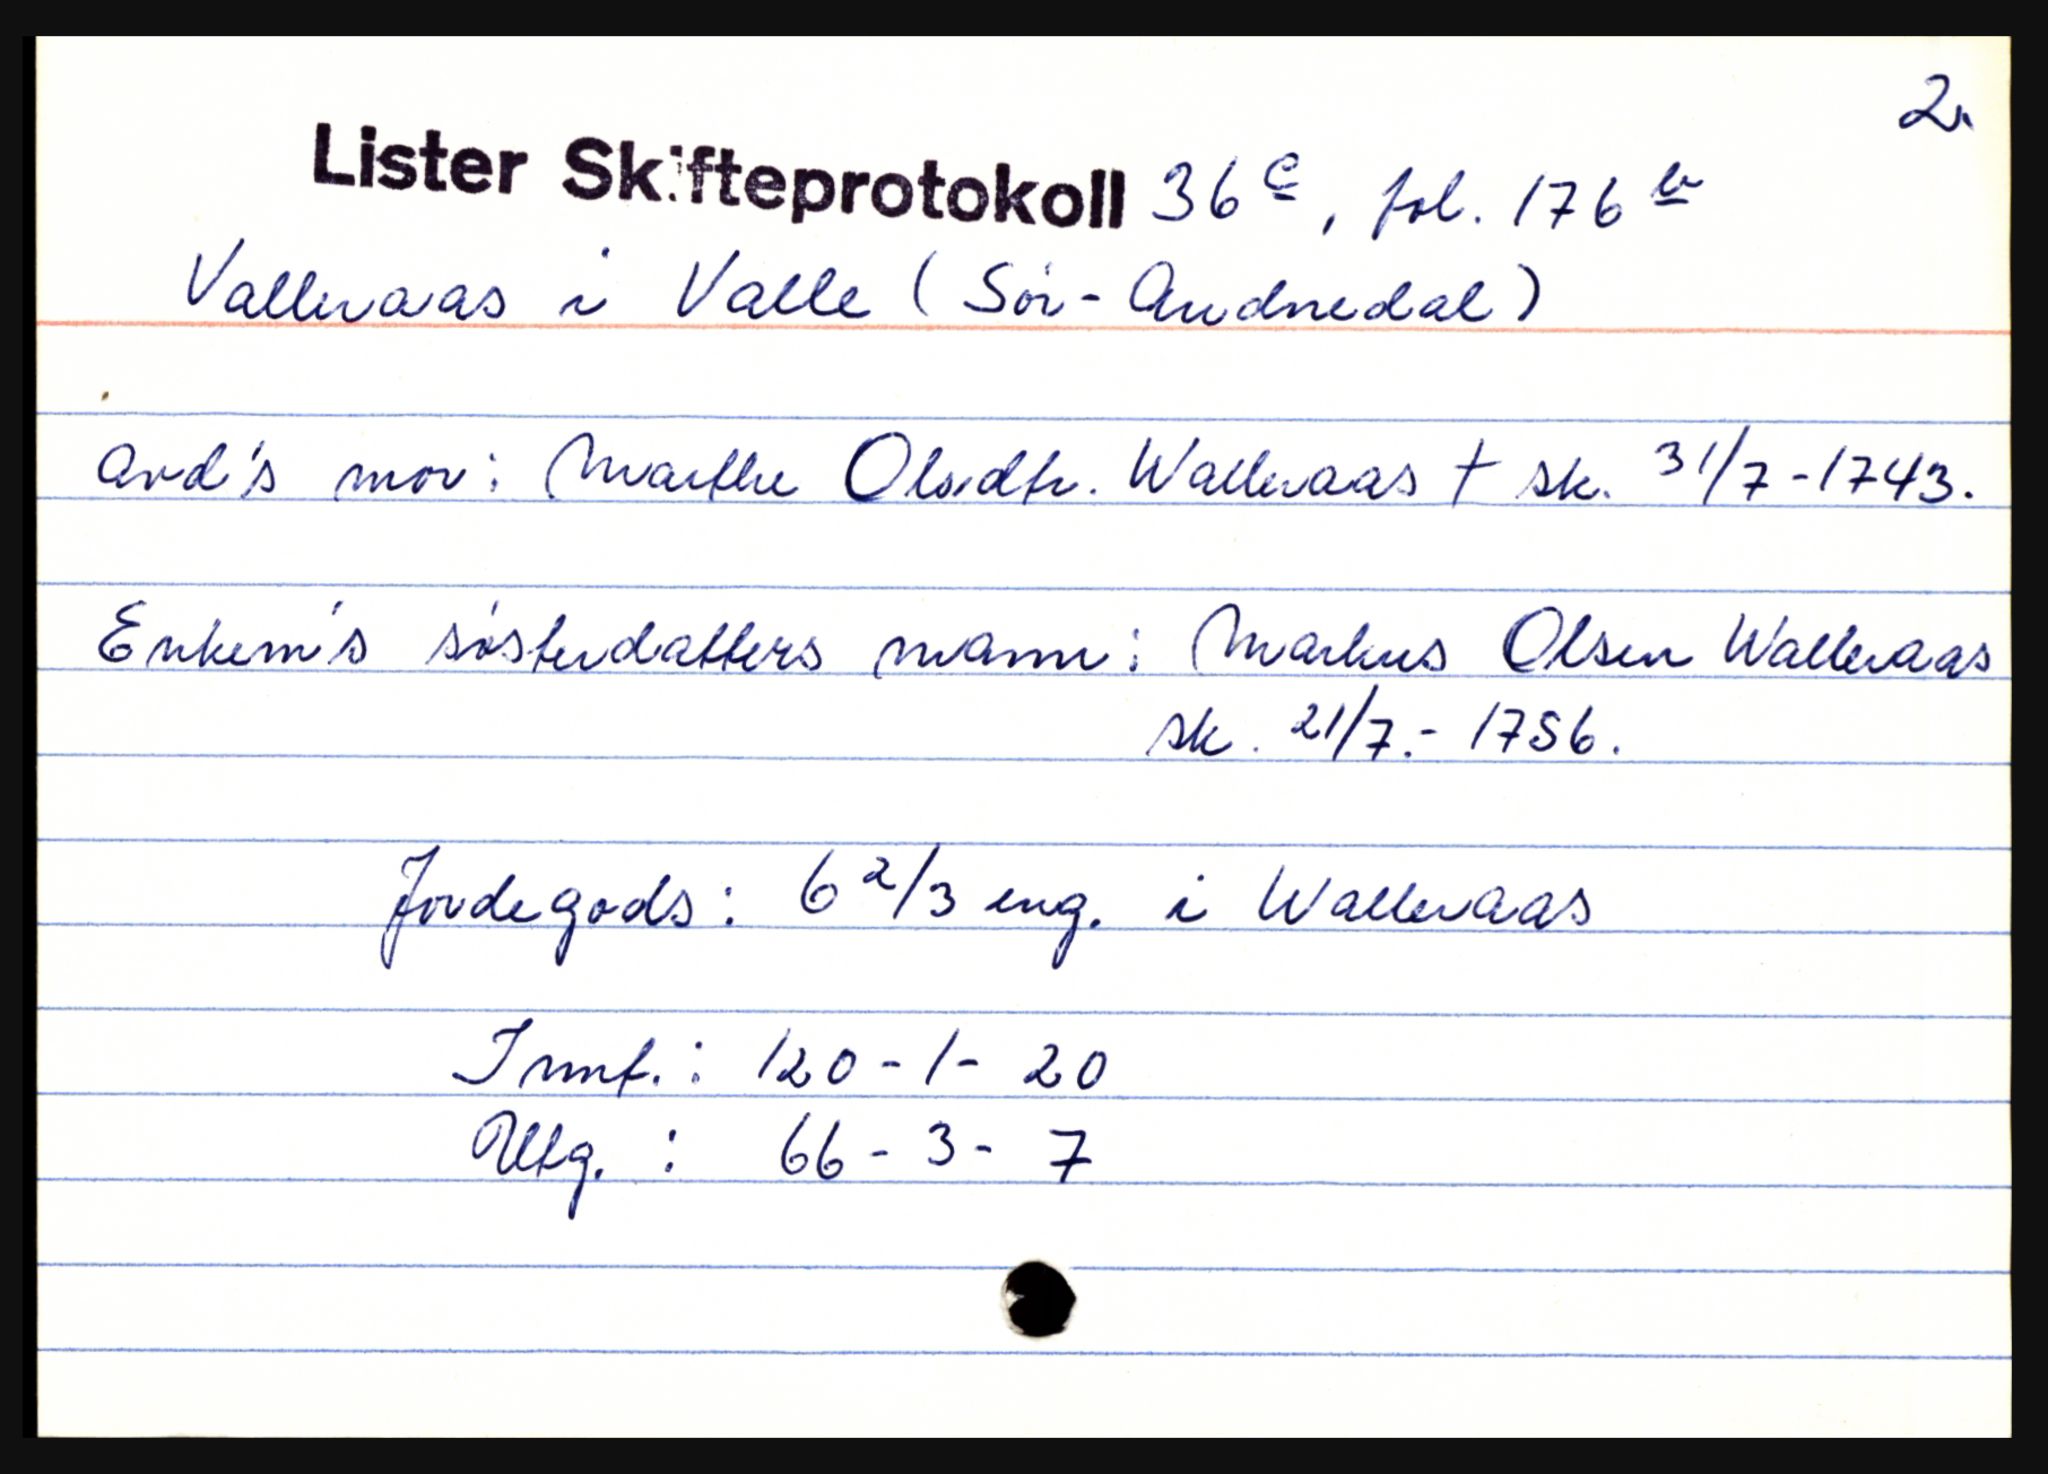 2.
Lister Skifteprotokoll 36 c, fol. 176 b
Valleraas i Valle (Sør-Audnedal)
Avd's mor: Marthe Olsdtr. Walleraas † sk. 31/7-1743.
Enkem's søsterdatters mann: Markus Olsen Walleraas
sk. 21/7.- 1756.
Jordegods: 6 2/3 eng. i Walleraas
Innt.: 120 - 1 - 20
Utg. : 66 - 3 - 7